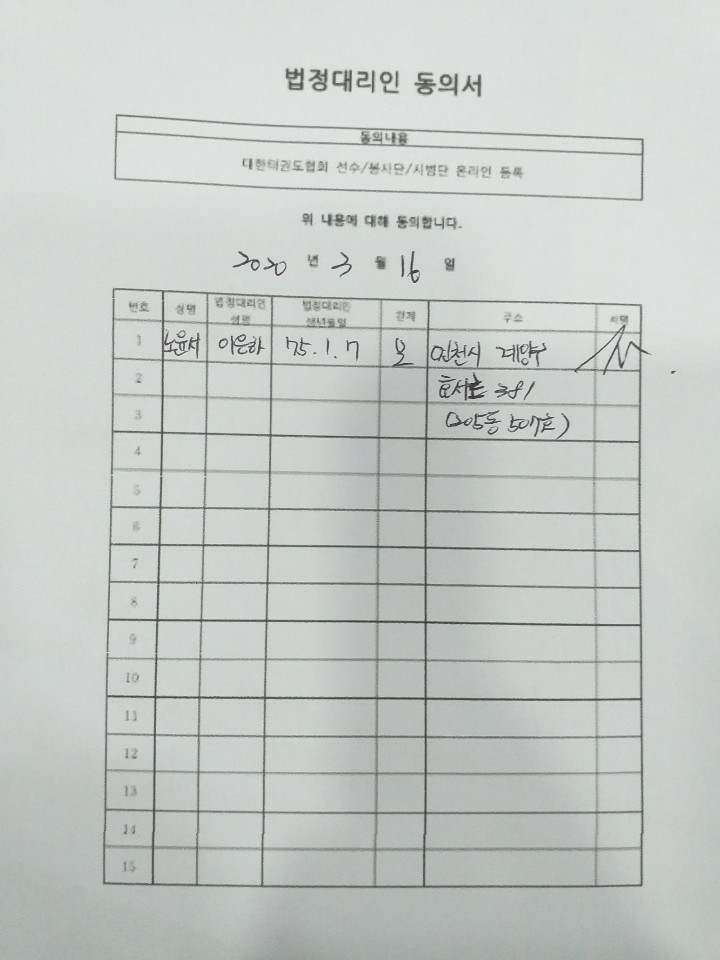 법정대리인 동의서
동의내용
대한태권도협회 선수/봉사단/시범단 온라인 등록
위 내용에 대해 동의합니다.
2020 년 3 월 16 일
번호 성명 법정대리인 성명 법정대리인 생년월일 관계 주소 서명
1 노윤서 이은하 75.1.7 모 인천시 계양구
2 효서로 381
3 (205동 507호)
4
5
6
7
8
9
10
11
12
13
14
15